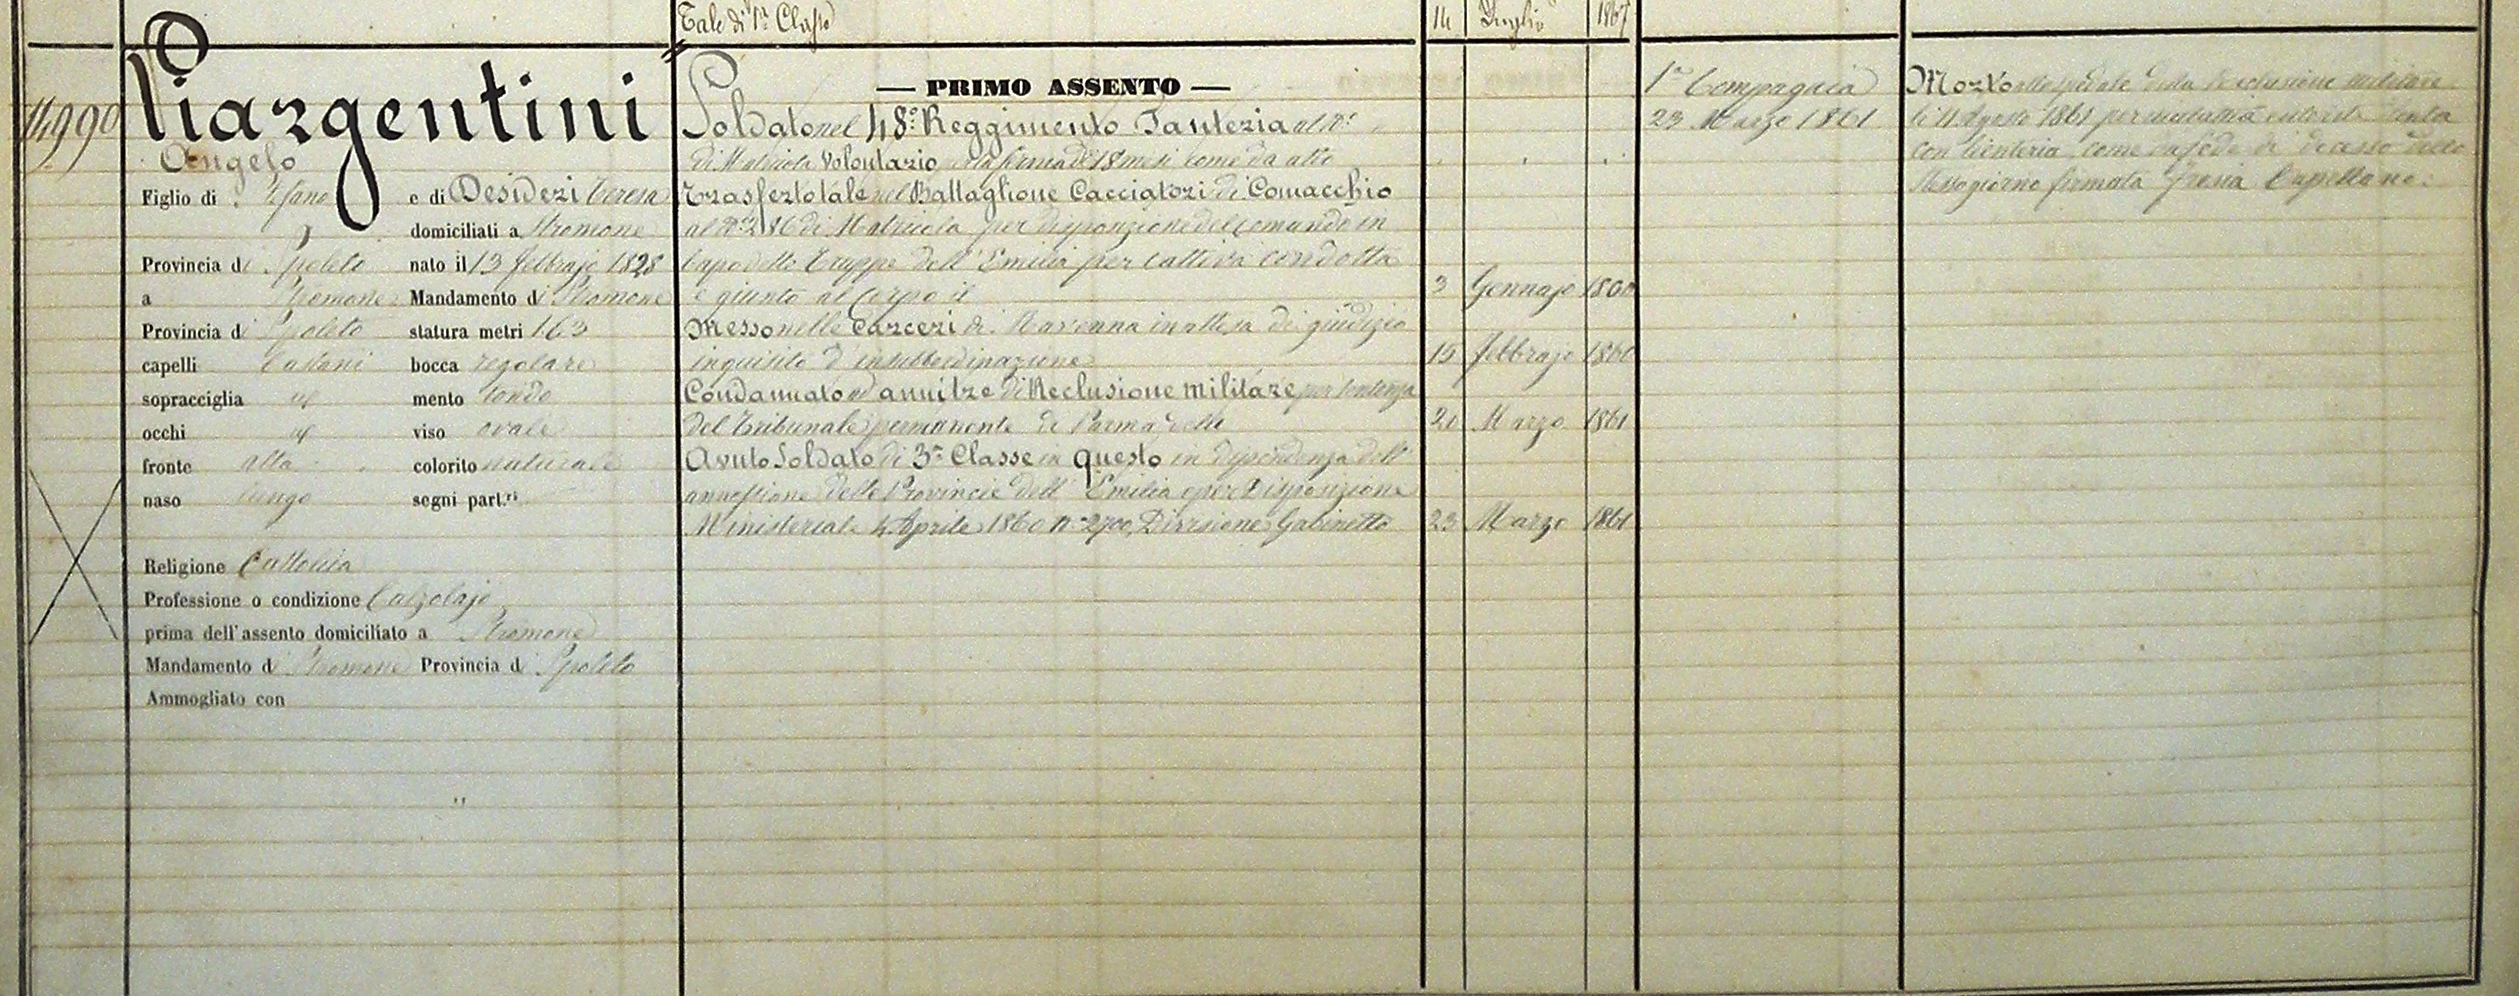 Tale di 1ª Classe 14 Luglio 1867
14990
Piargentini
Angelo
Figlio di Stefano e di Desideri Teresa
domiciliati a Stromone
Provincia di Spoleto nato il 13 febbrajo 1828
a Stromone Mandamento di Stromone
Provincia di Spoleto statura metri 1.63
capelli Castani bocca regolare
sopracciglia id mento tondo
occhi id viso ovale
fronte alta colorito naturale
naso lungo segni part.ri
Religione Cattolica
Professione o condizione Calzolajo
prima dell'assento domiciliato a Stromone
Mandamento di Stromone Provincia di Spoleto
Ammogliato con
— PRIMO ASSENTO —
Soldato nel 48º Reggimento Fanteria al Nº
di Matricola Volontario per la ferma di 18 mesi come da atto
Trasferto tale nel Battaglione Cacciatori di Comacchio
al Nº 286 di Matricola per disposizione del Comando in
Capo delle Truppe dell'Emilia per cattiva condotta
e giunto al Corpo il 3 Gennajo 1860
Messo nelle Carceri di Ravenna in attesa di giudizio
inquisito d'insubbordinazione 15 febbrajo 1860
Condannato ad anni tre di Reclusione militare per sentenza
del Tribunale permanente di Parma delli 20 Marzo 1861
Avuto Soldato di 3ª Classe in questo in dipendenza dell'
annessione delle Provincie dell'Emilia e per Disposizione
Ministeriale 4 Aprile 1860 Nº 2700, Divisione Gabinetto 23 Marzo 1861
1ª Compagnia
23 Marzo 1861
Morto allo spedale della Reclusione militare
li 11 Agosto 1861 per enterite lenta
con lienteria, come da fede di decesso dello
stesso giorno firmata Capellano.